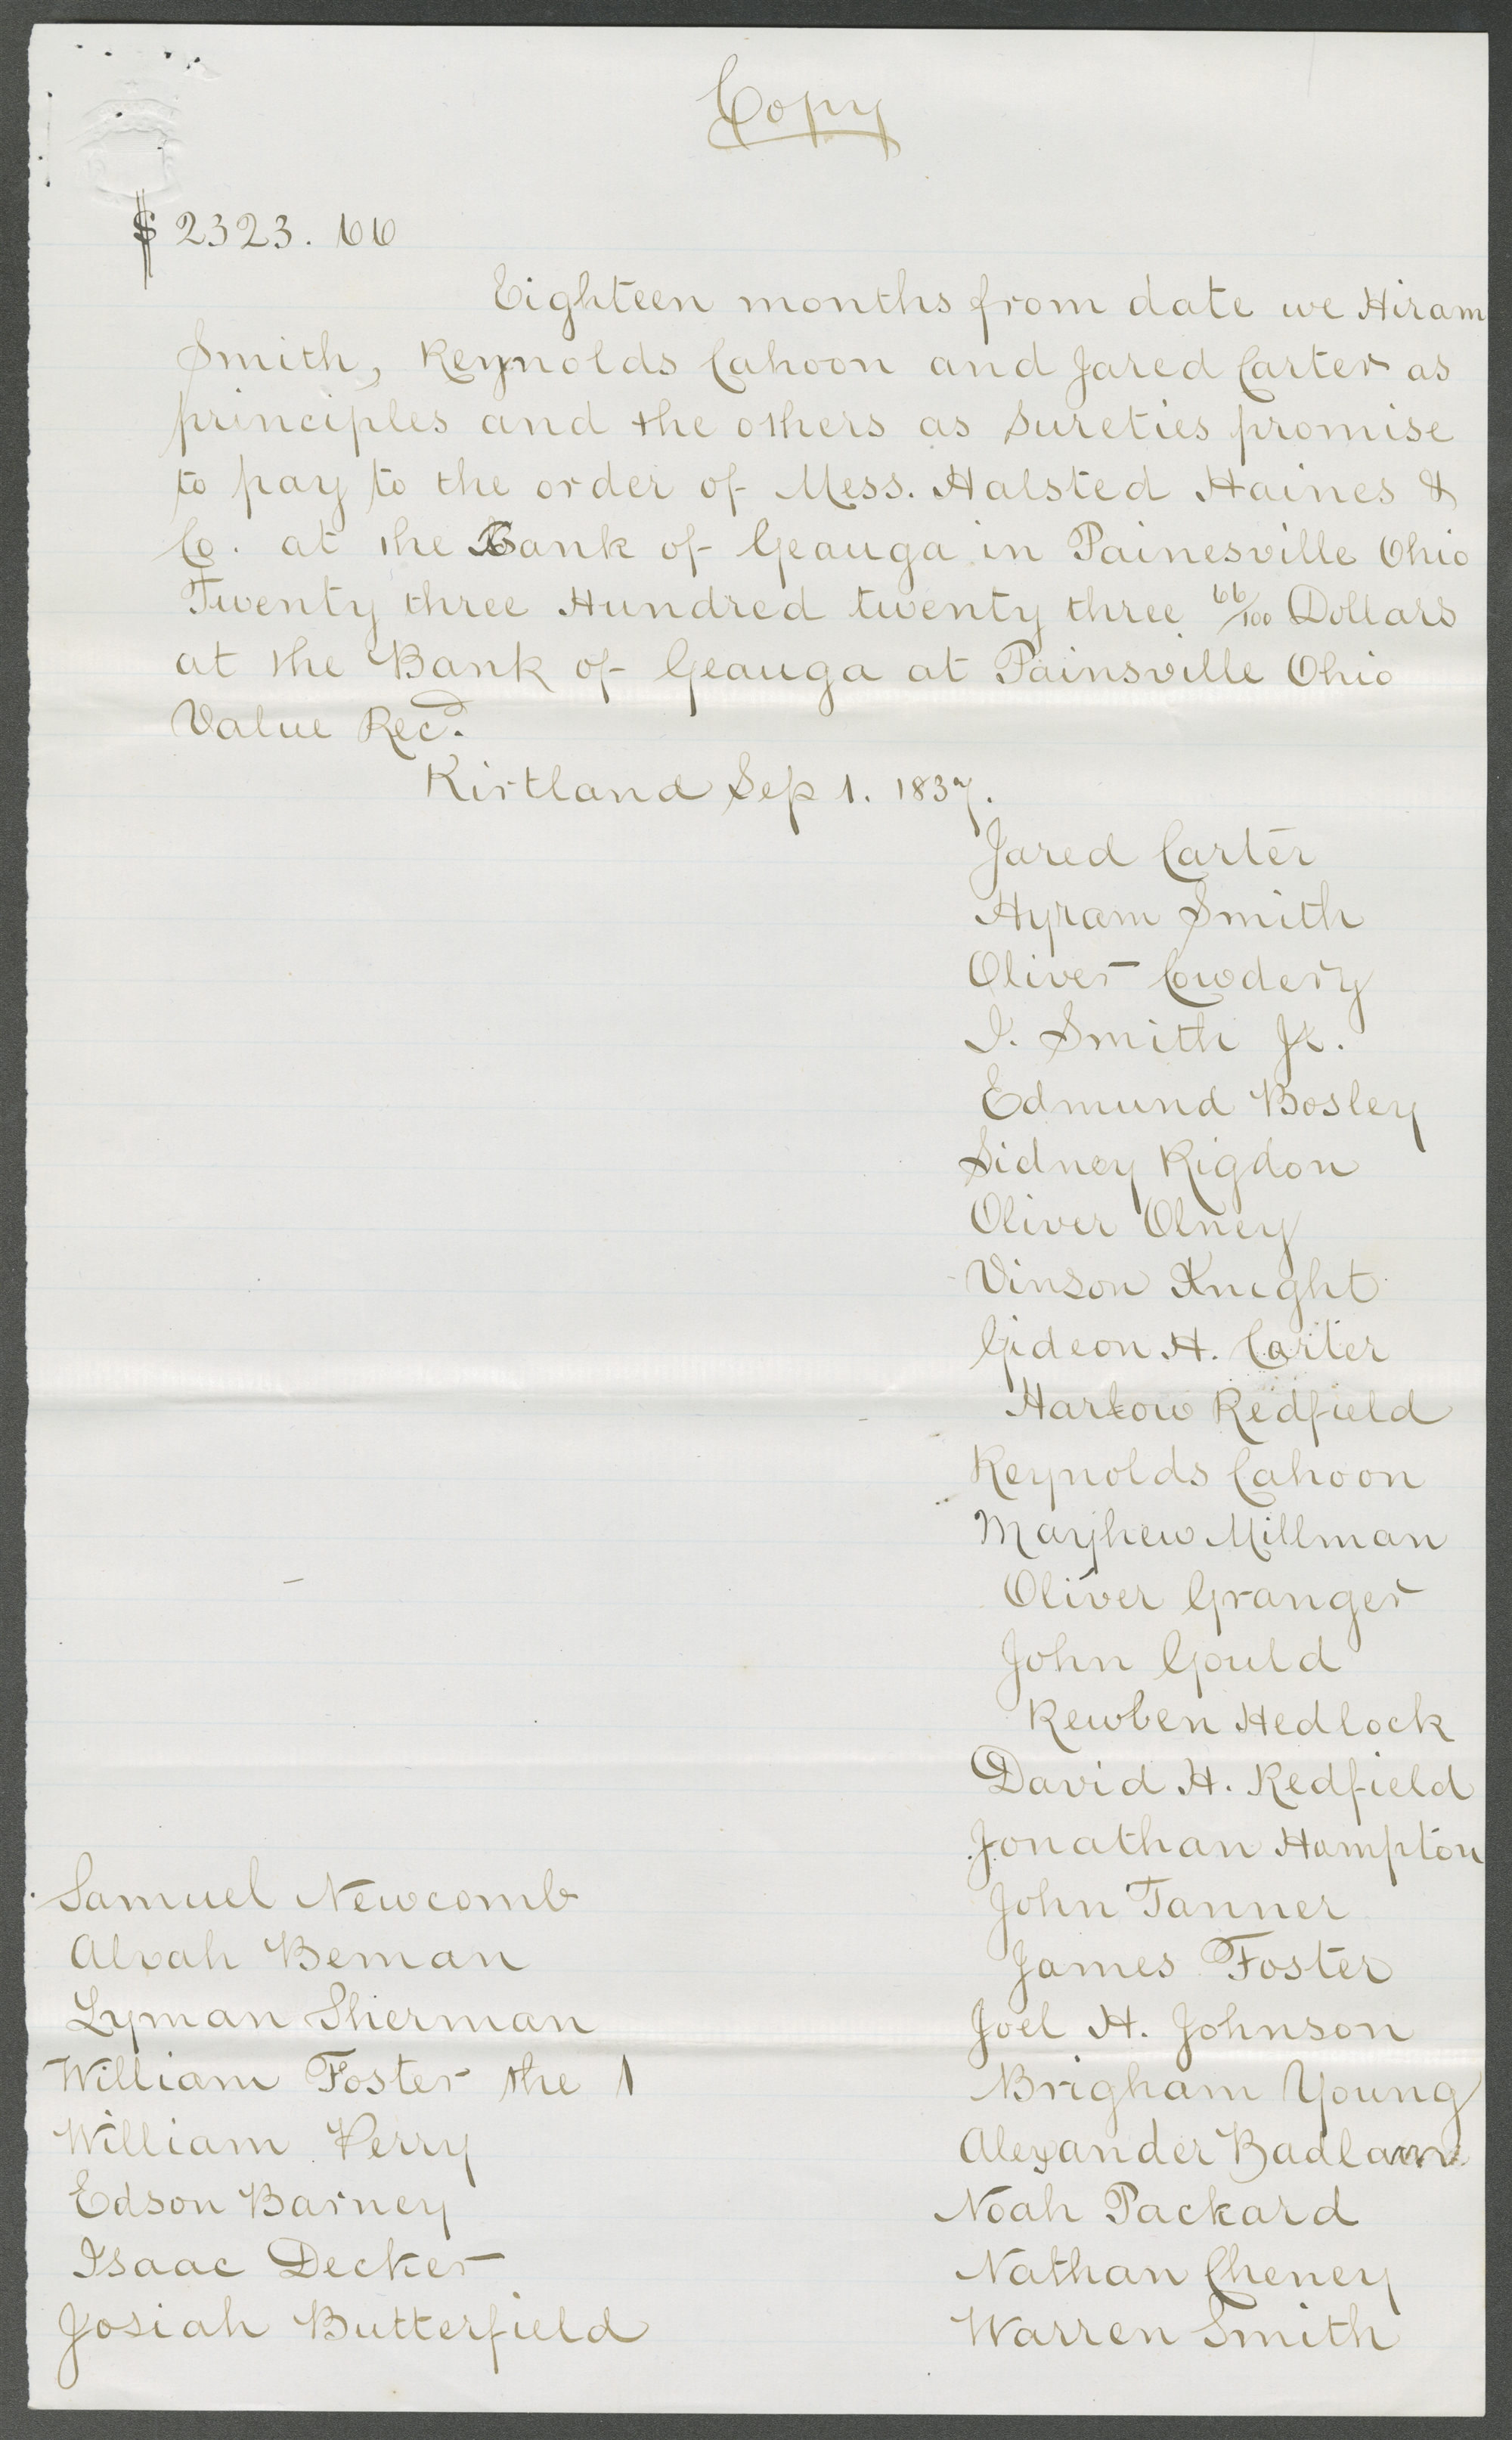 Copy
$ 2323. 66
Eighteen months from date we Hiram
Smith, Reynolds Cahoon and Jared Carter as
principles and the others as Sureties promise
to pay to the order of Mess. Halsted Haines &
Co. at the Bank of Geauga in Painesville Ohio
Twenty three Hundred twenty three 66/100 Dollars
at the Bank of Geauga at Painsville Ohio
Value Recd.
Kirtland Sep 1. 1837.
Jared Carter
Hyram Smith
Oliver Cowdery
J. Smith Jr.
Edmund Bosley
Sidney Rigdon
Oliver Olney
Vinson Knight
Gideon H. Carter
Harlow Redfield
Reynolds Cahoon
Mayhew Millman
Oliver Granger
John Gould
Rewben Hedlock
David H. Redfield
Jonathan Hampton
John Tanner
James Foster
Joel H. Johnson
Brigham Young
Alexander Badlam
Noah Packard
Nathan Cheney
Warren Smith
Samuel Newcomb
Alvah Beman
Lyman Sherman
William Foster the 1
William Perry
Edson Barney
Isaac Decker
Josiah Butterfield